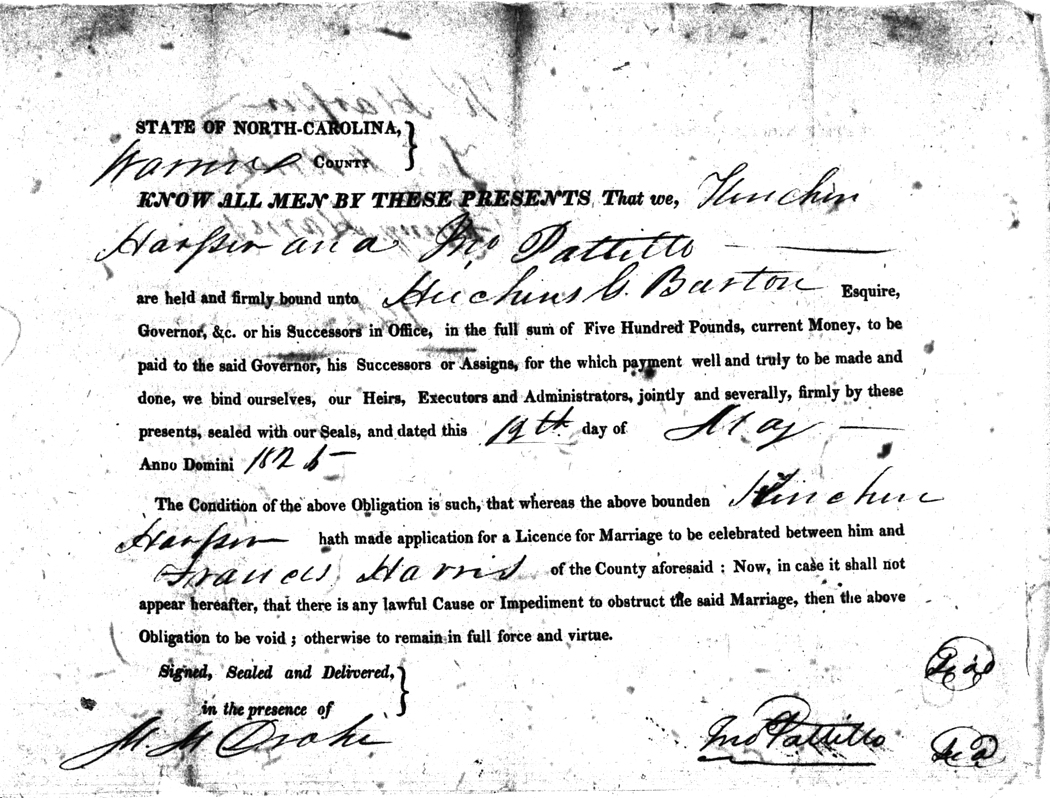 STATE OF NORTH-CAROLINA, }
Warren COUNTY
KNOW ALL MEN BY THESE PRESENTS, That we, Kinchin
Harper and Jno Pattillo
are held and firmly bound unto Hutchins G. Burton Esquire,
Governor, &c. or his Successors in Office, in the full sum of Five Hundred Pounds, current Money, to be
paid to the said Governor, his Successors or Assigns, for the which payment well and truly to be made and
done, we bind ourselves, our Heirs, Executors and Administrators, jointly and severally, firmly by these
presents, sealed with our Seals, and dated this 19th day of May
Anno Domini 1825
The Condition of the above Obligation is such, that whereas the above bounden Kinchin
Harper hath made application for a Licence for Marriage to be celebrated between him and
Francis Harris of the County aforesaid : Now, in case it shall not
appear hereafter, that there is any lawful Cause or Impediment to obstruct the said Marriage, then the above
Obligation to be void ; otherwise to remain in full force and virtue.
Signed, Sealed and Delivered, }
in the presence of
M. M Drake Jno Pattillo